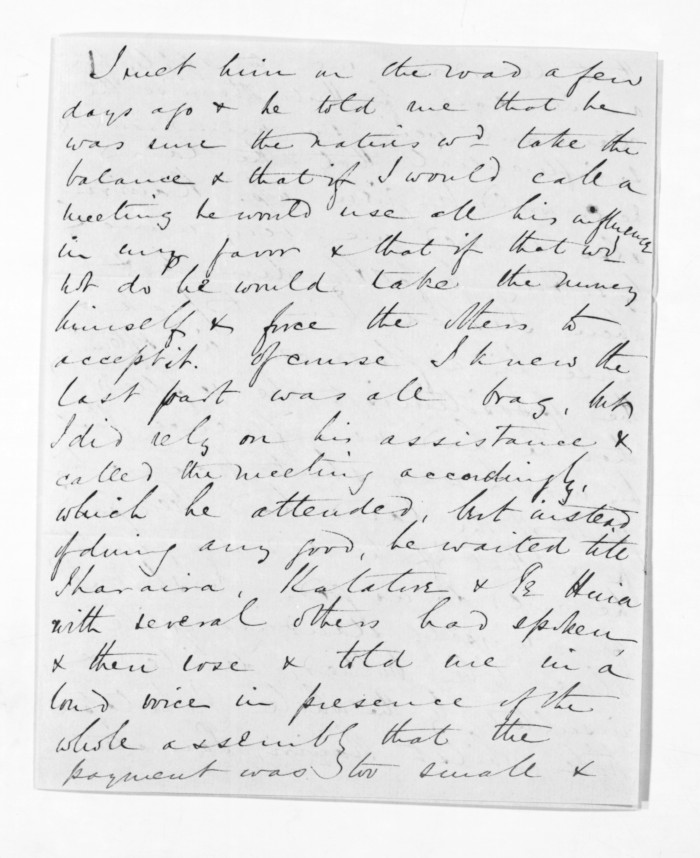 I met him on the road a few
days ago & he told me that he
was sure the natives wd take the
balance & that if I would call a
meeting he would use all his influence
in my favor & that if that wd
not do he would take the money
himself & force the others to
accept it. Of course I knew the
last part was all brag, but
I did rely on his assistance &
called the meeting accordingly,
which he attended, but instead
of doing any good, he waited till
Iharaira, Katatore & Te Huia
with several others had spoken,
& then rose & told me in a
loud voice in presence of the
whole assembly that the
payment was too small &